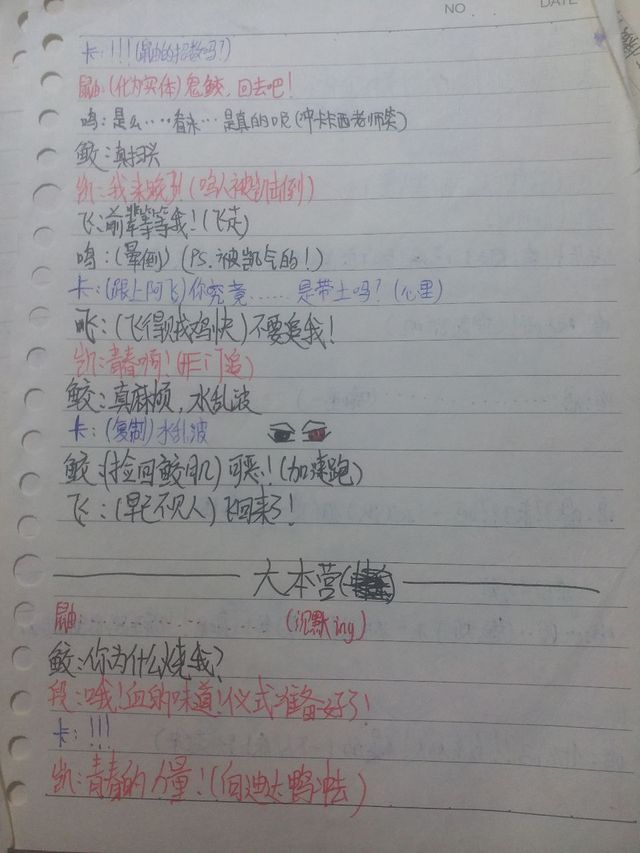 NO. DATE
卡：!!!(鼬的招数吗?)
鼬：(化为实体)鬼鲛，回去吧!
鸣：是么‥‥看来…是真的呢(冲卡卡西老师笑)
鲛：真扫兴
凯：我来晚了!(鸣人被凯击倒)
飞：前辈等等我!(飞走)
鸣：(晕倒)(PS.被凯气的!)
卡：(跟上阿飞)你究竟……是带土吗?(心里)
飞：(飞得颗战鸡快)不要追我!
凯：青春啊!(开门追)
鲛：真麻烦，水乱波
卡：(复制)水乱波
鲛：(捡回鲛肌)可恶!(加速跑)
飞：(早已不见人)飞回来了!
大本营
鼬…………………(沉默ing)
鲛：你为什么烧我?
段：哦!血的味道!仪式准备好了!
卡：!!!
凯：青春的力量!(向迪达鸭冲去)